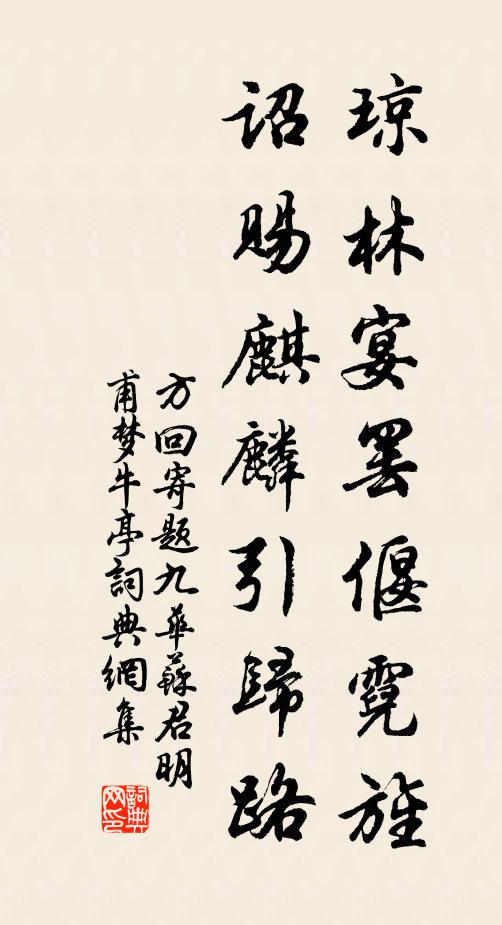 琼林宴罢偃霓旌
诏赐麒麟引歸路
方回寄题九华蘇君明
甫梦牛亭詞典網集
詞典
网印